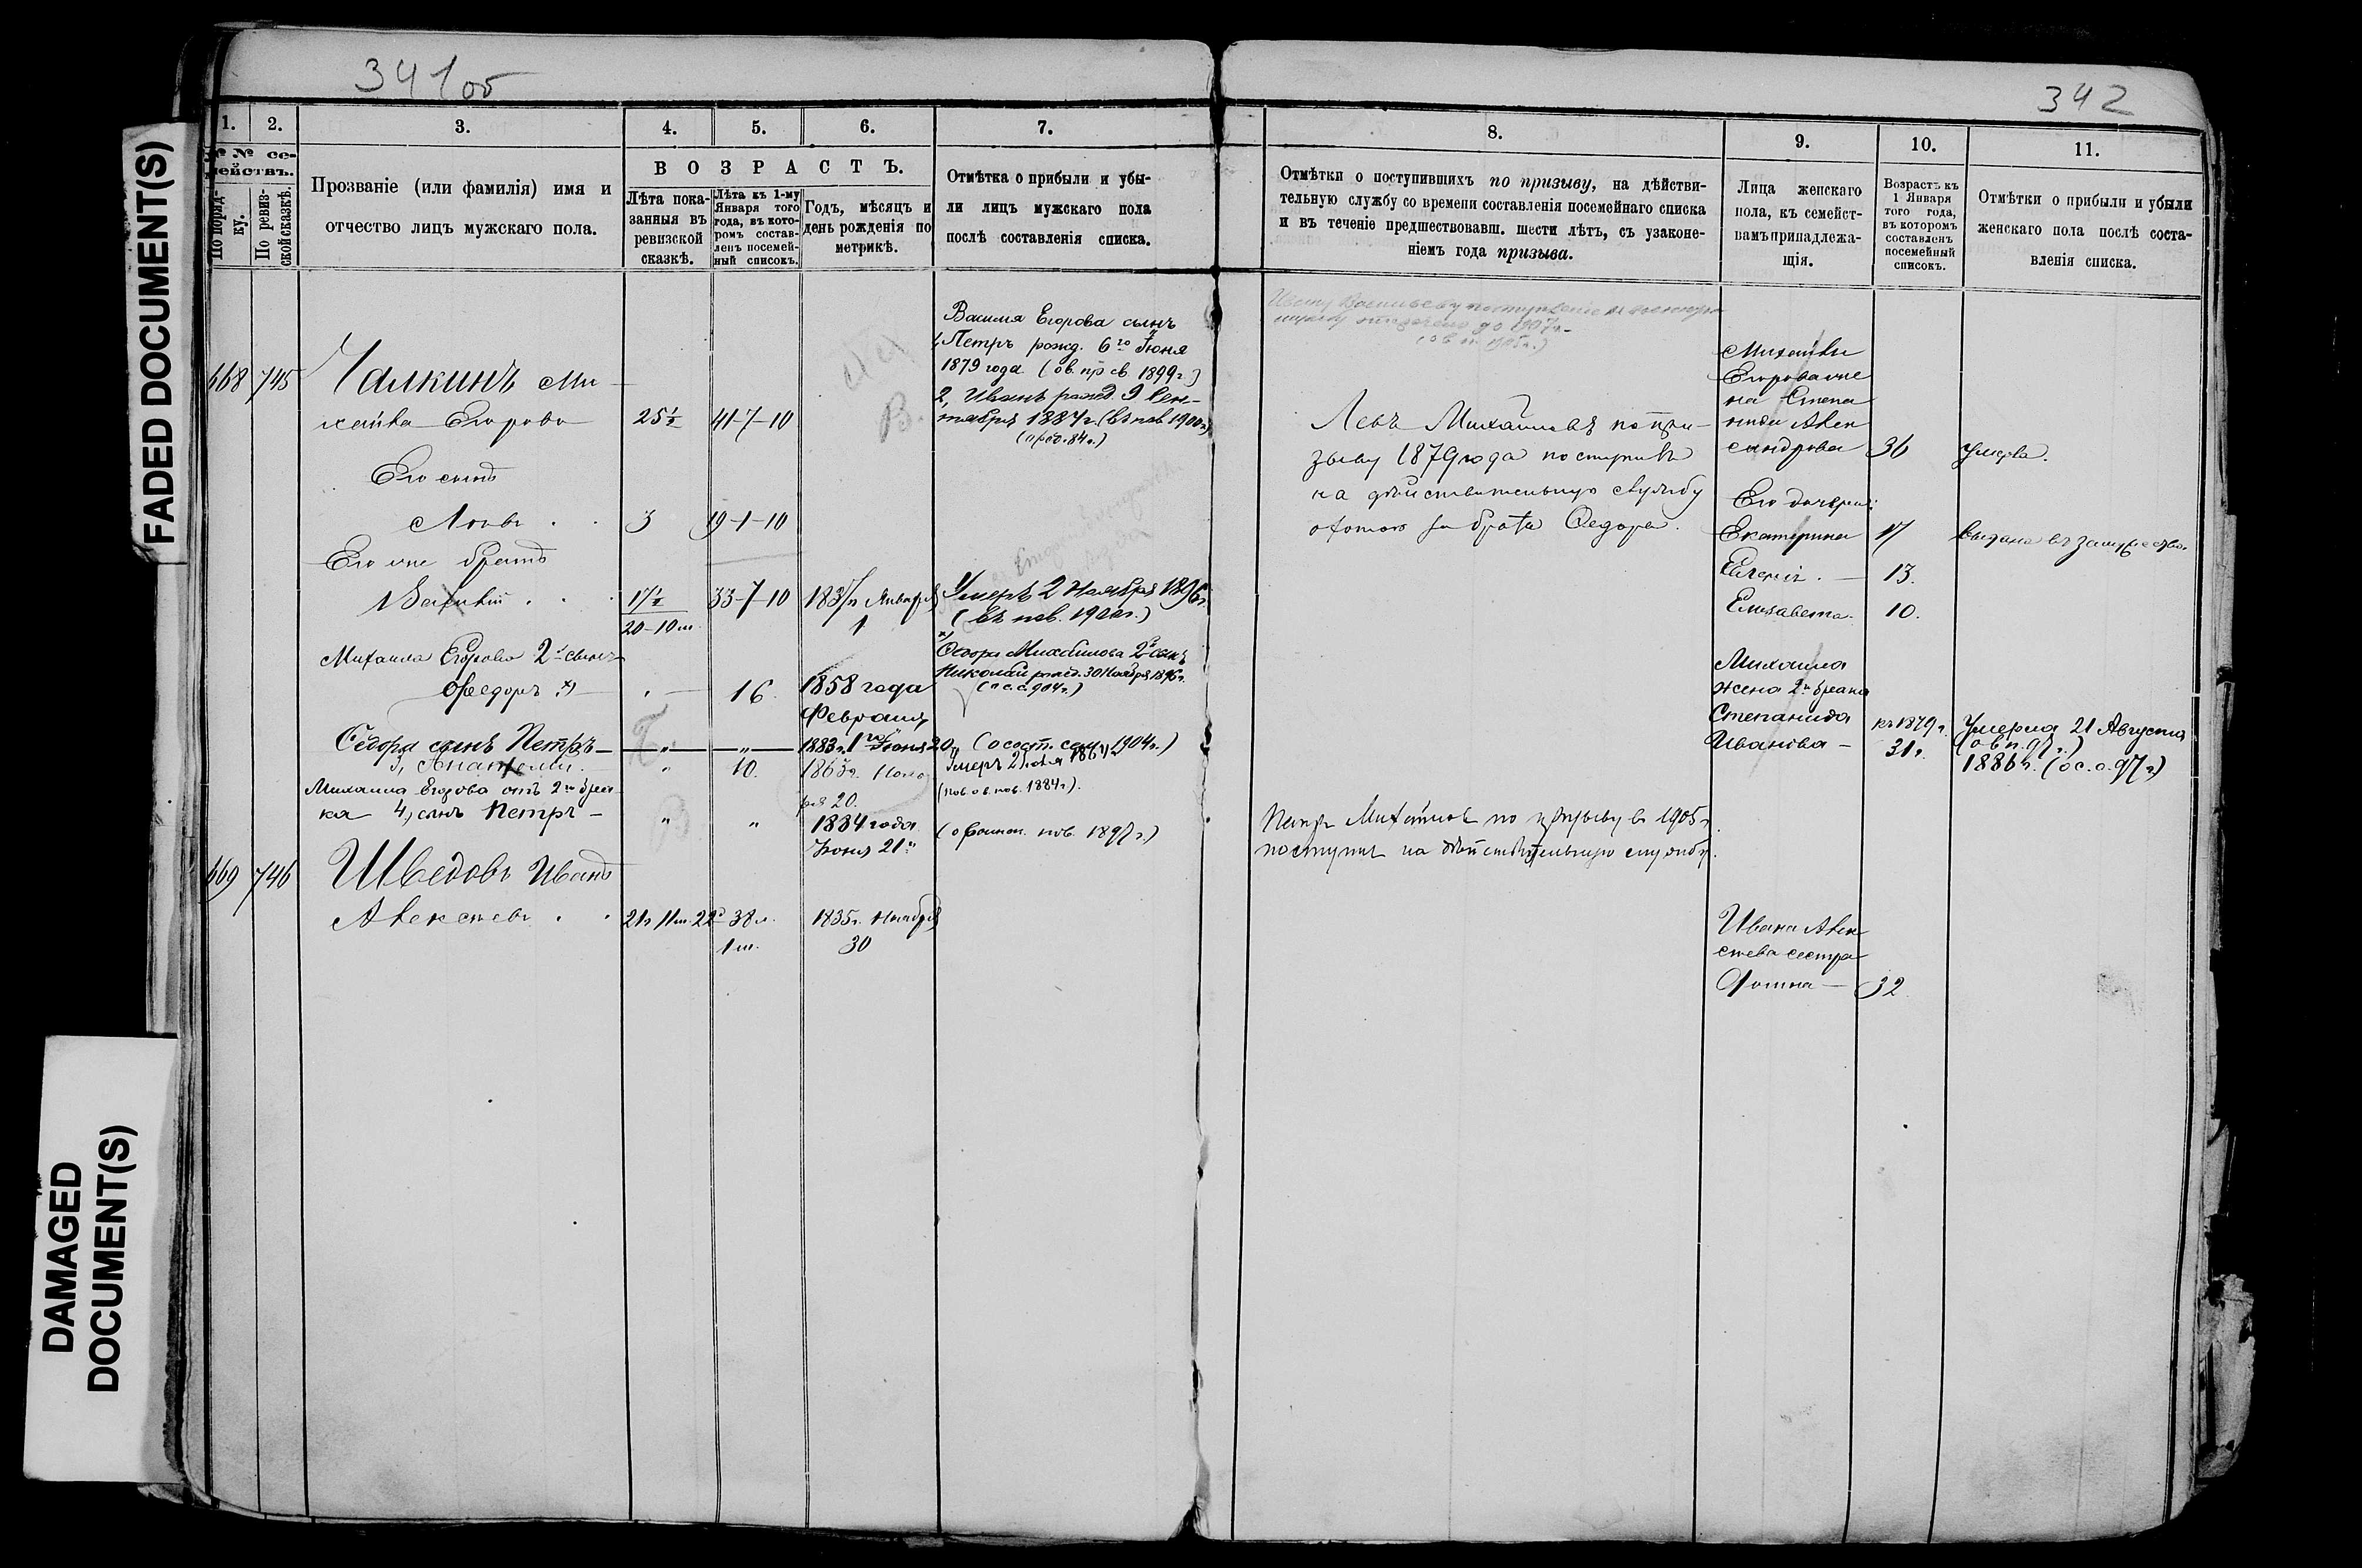 341об
342
FADED DOCUMENT(S)
DAMAGED
DOCUMENT(S)
1.
2.
3.
4.
5.
6.
7.
№ № се-
мействъ.
По поряд-
ку.
По ревиз-
ской сказкѣ.
Прозваніе (или фамилія) имя и
отчество лицъ мужскаго пола.
ВОЗРАСТЪ.
Лѣта пока-
занныя въ
ревизской
сказкѣ.
Лѣта къ 1-му
Января того
года, въ кото-
ромъ состав-
ленъ посемей-
ный списокъ.
Годъ, мѣсяцъ и
день рожденія по
метрикѣ.
Отмѣтка о прибыли и убы-
ли лицъ мужскаго пола
послѣ составленія списка.
8.
9.
10.
11.
Отмѣтки о поступившихъ по призыву, на дѣйстви-
тельную службу со времени составленія посемейнаго списка
и въ теченіе предшествовавш. шести лѣтъ, съ узаконе-
ніемъ года призыва.
Лица женскаго
пола, къ семейст-
вамъ принадлежа-
щія.
Возрастъ къ
1 Января
того года,
въ которомъ
составленъ
посемейный
списокъ.
Отмѣтки о прибыли и убыли
женскаго пола послѣ соста-
вленія списка.
668 745 Чалкинъ Ми-
хайла Егоровъ 25½ 41-7-10
Его сынъ
Левъ 3 19-1-10
Его же братъ
Василій 17½ 33-7-10 1835 г. Января
20-10 м. 1
Михаила Егорова 2й сынъ
Федоръ х) 16 1858 года
Февраля
Федора сынъ Петръ — „ — „ — 1883 г. 1го Іюня
3, „ 10. 1863 г.
20.
Михаила Егорова отъ 2го бра-
ка 4, сынъ Петръ — „ „ 1884 года
Іюня 21го
669 746 Шведовъ Иванъ
Алексѣевъ 21 г 11 м. 22 д 38 л. 1835 г. Ноября
1 м. 30
Василія Егорова сынъ
1, Петръ рожд. 6го Іюня
1879 года (об. пр св. 1899 г.)
2, Иванъ рожд. 9 Сен-
тября 1884 г. (въ пов. 1900 г.)
Умеръ 2 Ноября 1896 г.
(въ пов. 1900 г.)
х) Федора Михайлова 2й сынъ
Николай рожд. 30 Ноября 1896 г.
(о с. с. 904 г.)
(о сост. сем. 1904 г.)
Умеръ
(пов. о в. пов. 1884 г.).
(о пов. 1897 г.)
Ивану Васильеву поступленіе на военную
службу отсрочено до 1907 г.
Левъ Михайловъ по при-
зыву 1879 года поступилъ
на дѣйствительную службу
охотою за брата Федора.
Петръ Михайловъ по призыву въ 1905 г.
поступилъ на дѣйствительную службу.
Михайлы
Егорова же-
на Степа-
нида Алек-
сандрова 36 умерла.
Его дочери:
Екатерина 17 выдана въ замужество.
13.
Елизавета 10.
Михаила
жена 2го брака
Степанида къ 1879 г. Умерла 21 Августа
Иванова — 31 г. 1886 г. (о с. с. 97 г.)
Ивана Алек-
сѣева сестра
32